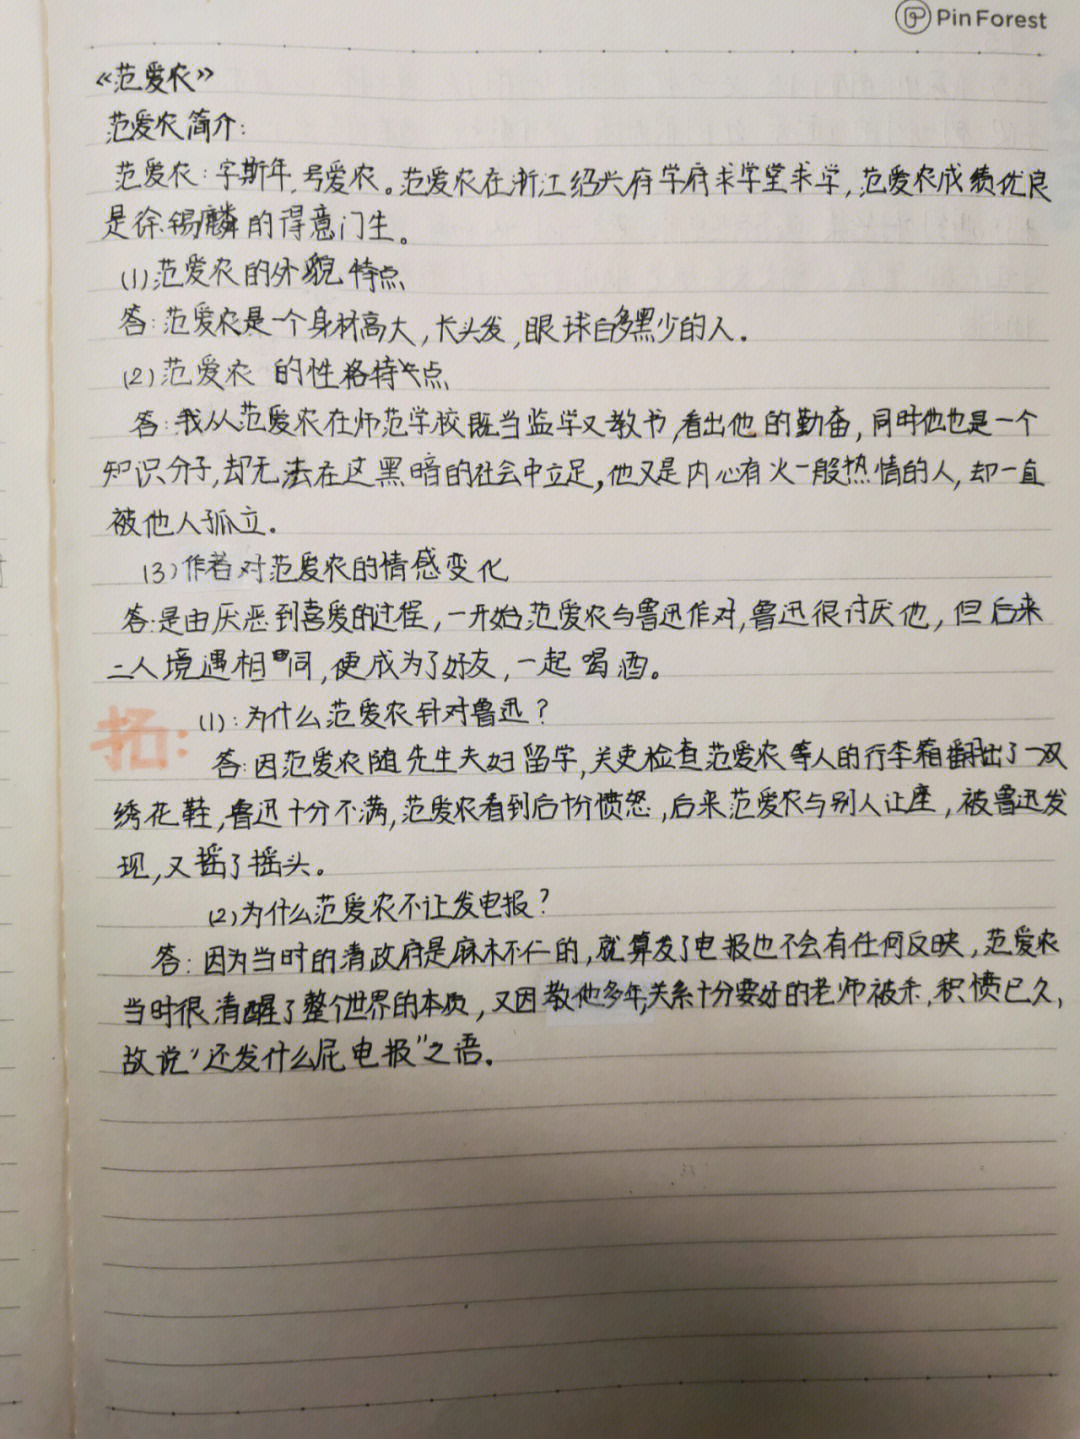 PinForest
《范爱农》
范爱农简介:
范爱农:字斯年,号爱农。范爱农在浙江绍兴府学府求学堂求学,范爱农成绩优良
是徐锡麟的得意门生。
(1)范爱农的外貌特点
答:范爱农是一个身材高大,长头发,眼球白多黑少的人.
(2)范爱农的性格特点
答:我从范爱农在师范学校既当监学又教书,看出他的勤奋,同时他也是一个
知识分子,却无法在这黑暗的社会中立足,他又是内心有火一般热情的人,却一直
被他人孤立.
(3)作者对范爱农的情感变化
答:是由厌恶到喜爱的过程,一开始范爱农与鲁迅作对,鲁迅很讨厌他,但后来
二人境遇相同,便成为了好友,一起喝酒。
拓:(1):为什么范爱农针对鲁迅?
答:因范爱农随先生夫妇留学,关吏检查范爱农等人的行李箱翻出了一双
绣花鞋,鲁迅十分不满,范爱农看到后十分愤怒,后来范爱农与别人让座,被鲁迅发
现,又摇了摇头。
(2)为什么范爱农不让发电报?
答:因为当时的清政府是麻木不仁的,就算发了电报也不会有任何反映,范爱农
当时很清醒了整个世界的本质,又因教他多年,关系十分要好的老师被杀,积愤已久,
故说"还发什么屁电报"之语.